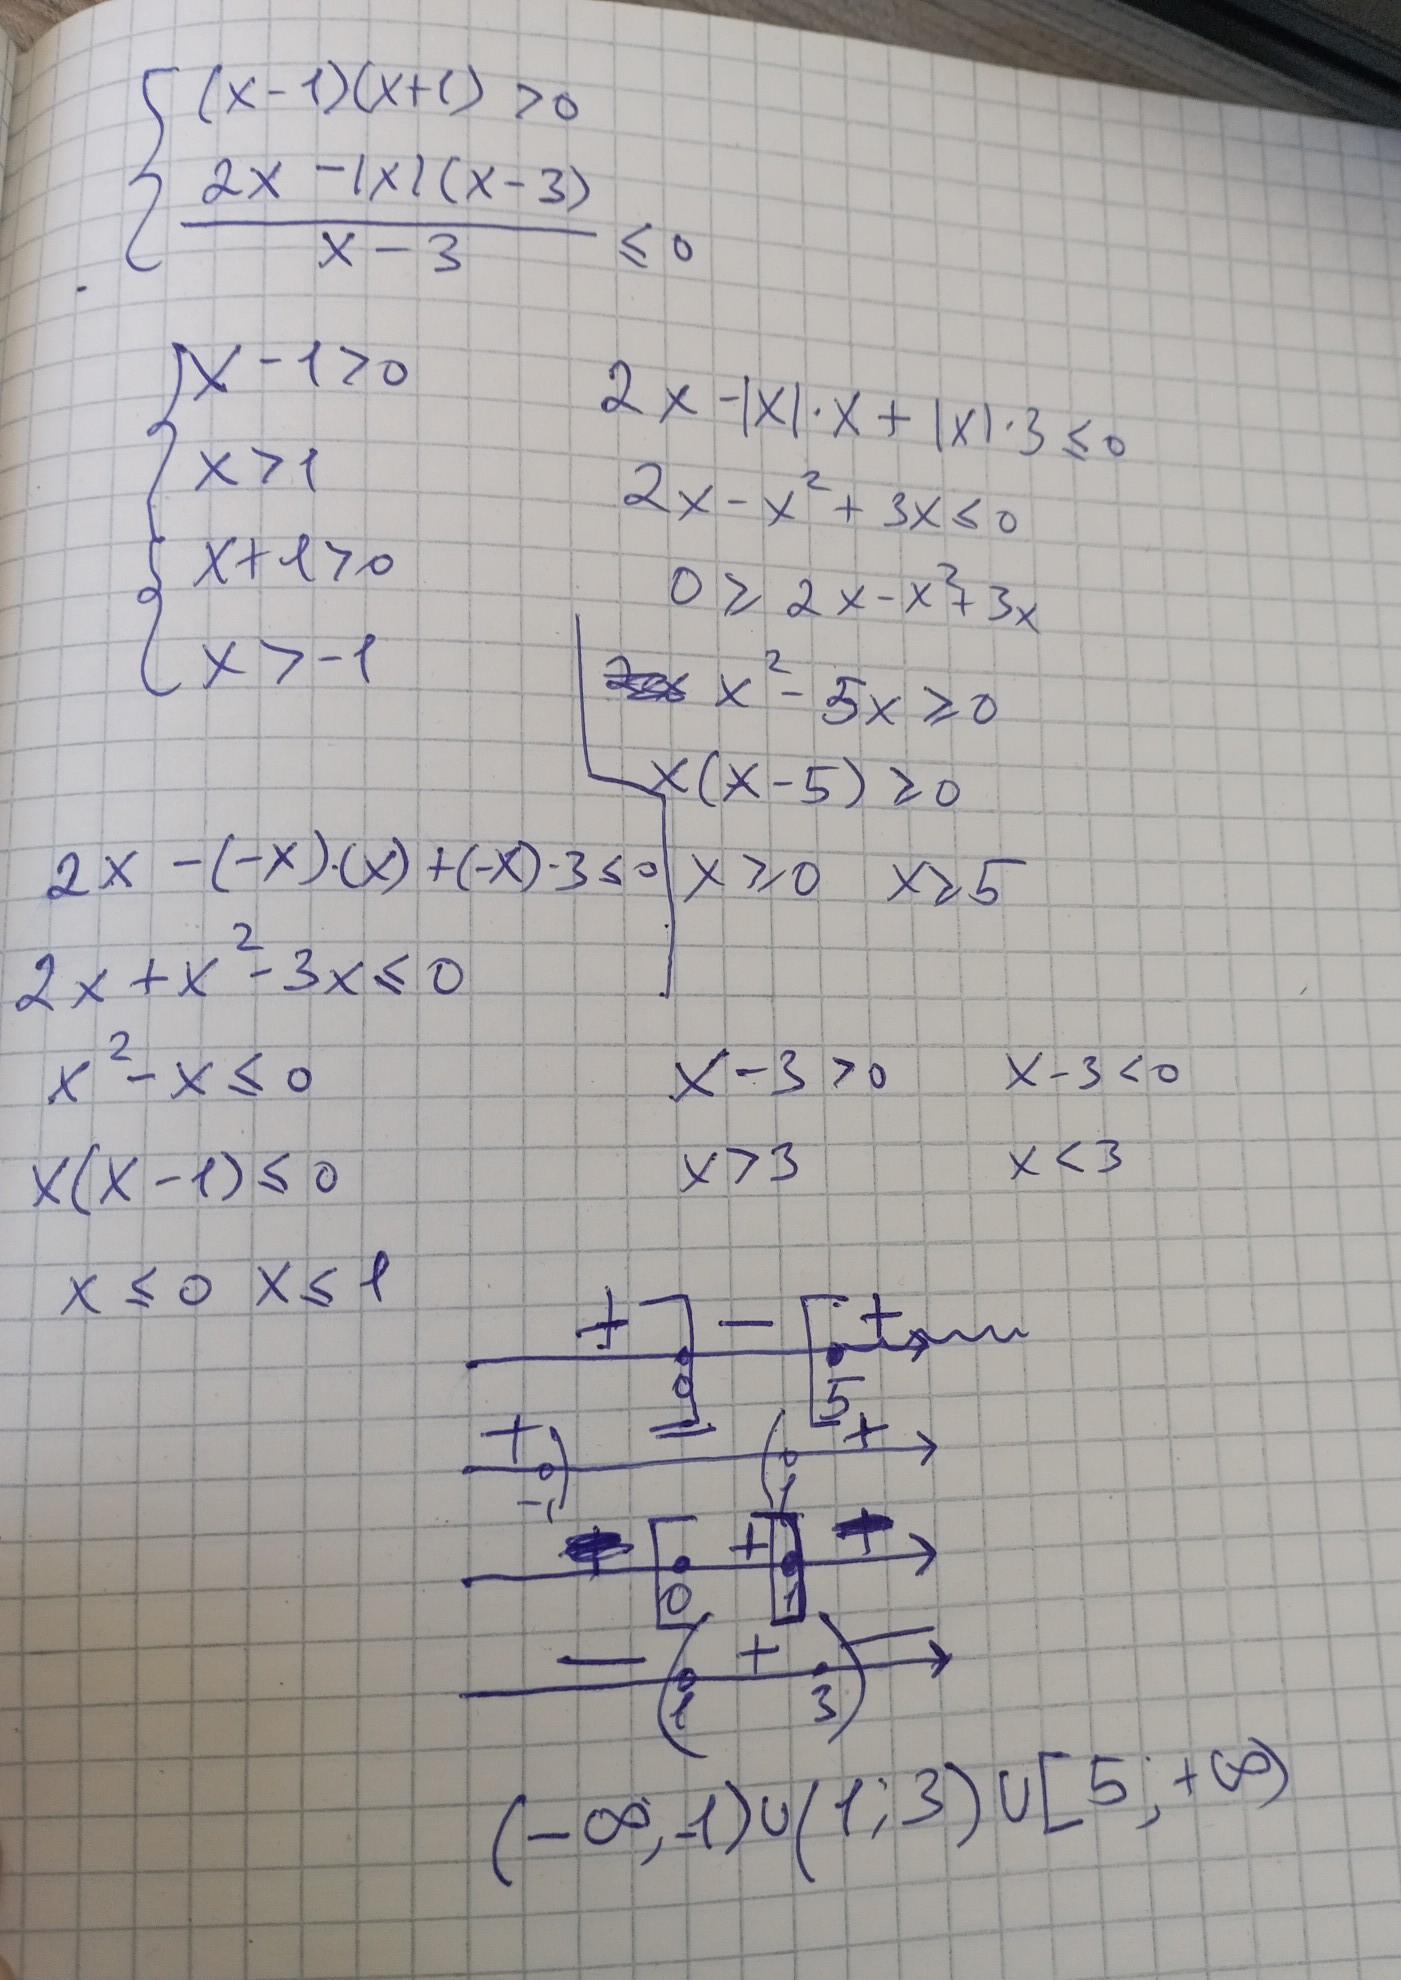 (x-1)(x+1) > 0
2x - |x|(x-3)
x - 3 ≤ 0
x - 1 > 0
x > 1
x + 1 > 0
x > -1
2x - |x|·x + |x|·3 ≤ 0
2x - x² + 3x ≤ 0
0 ≥ 2x - x² + 3x
x² - 5x ≥ 0
x(x-5) ≥ 0
x ≥ 0 x ≥ 5
2x - (-x)·(x) + (-x)·3 ≤ 0
2x + x² - 3x ≤ 0
x² - x ≤ 0
x(x-1) ≤ 0
x ≤ 0 x ≤ 1
x - 3 > 0 x - 3 < 0
x > 3 x < 3
+ ] - [ +
0 5
+ ) ( +
-1 1
[ + ]
0 1
- ( + ) -
1 3
(-∞; -1) ∪ (1; 3) ∪ [5; +∞)